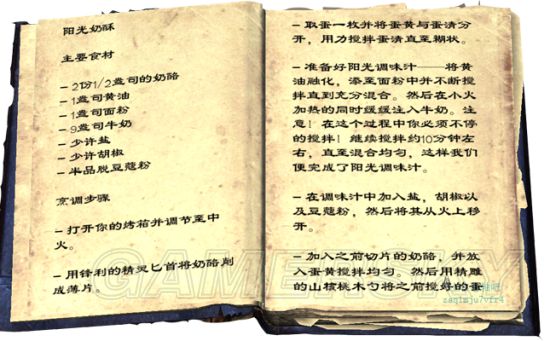 阳光奶酥
主要食材
- 2份1/2盎司的奶酪
- 1盎司黄油
- 1盎司面粉
- 9盎司牛奶
- 少许盐
- 少许胡椒
- 半品脱豆蔻粉
烹调步骤
- 打开你的烤箱并调节至中
火。
- 用锋利的精灵匕首将奶酪削
成薄片。
- 取蛋一枚并将蛋黄与蛋清分
开，用力搅拌蛋清直至糊状。
- 准备好阳光调味汁——将黄
油融化，添至面粉中并不断搅
拌直到充分混合。然后在小火
加热的同时缓缓注入牛奶。注
意！在这个过程中你必须不停
的搅拌！继续搅拌约10分钟左
右，直至混合均匀，这样我们
便完成了阳光调味汁。
- 在调味汁中加入盐，胡椒以
及豆蔻粉，然后将其从火上移
开。
- 加入之前切片的奶酪，并放
入蛋黄搅拌均匀。然后用精雕
的山核桃木勺将之前搅好的蛋
GAMERSKY
zaq1mju7vfr4